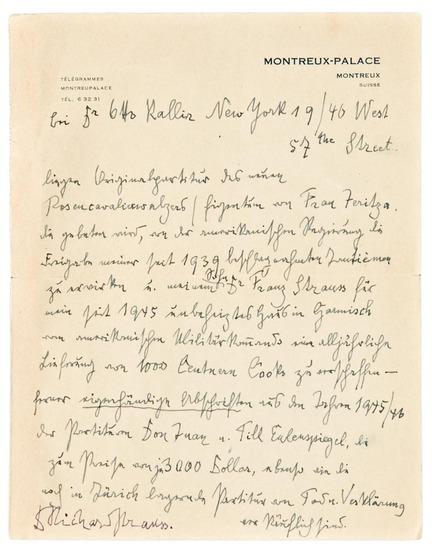 MONTREUX-PALACE
MONTREUX
SUISSE
TÉLÉGRAMMES
MONTREUPALACE
TÉL. 6 32 31
bei Dr Otto Kallir New York 19/46 West
57the Street.
liegen Originalpartitur des neuen
Rosencavalierwalzers / Eigentum von Frau Jeritza.
die gebeten wird, von der amerikanischen Regierung die
Freigabe meiner seit 1939 beschlagnahmten Tantièmen
zu erwirken u. meinem Sohn Dr Franz Strauss für
mein seit 1945 unbeheiztes Haus in Garmisch
vom amerikanischen Militärkommando eine alljährliche
Lieferung von 1000 Centnern Cooks zu verschaffen —
ferner eigenhändige Abschriften aus den Jahren 1945/46
der Partituren Don Juan u. Till Eulenspiegel, die
zum Preise von je 3000 Dollar, ebenso wie die
noch in Zürich lagernde Partitur von Tod u. Verklärung
verkäuflich sind.
DrRichardStrauss.